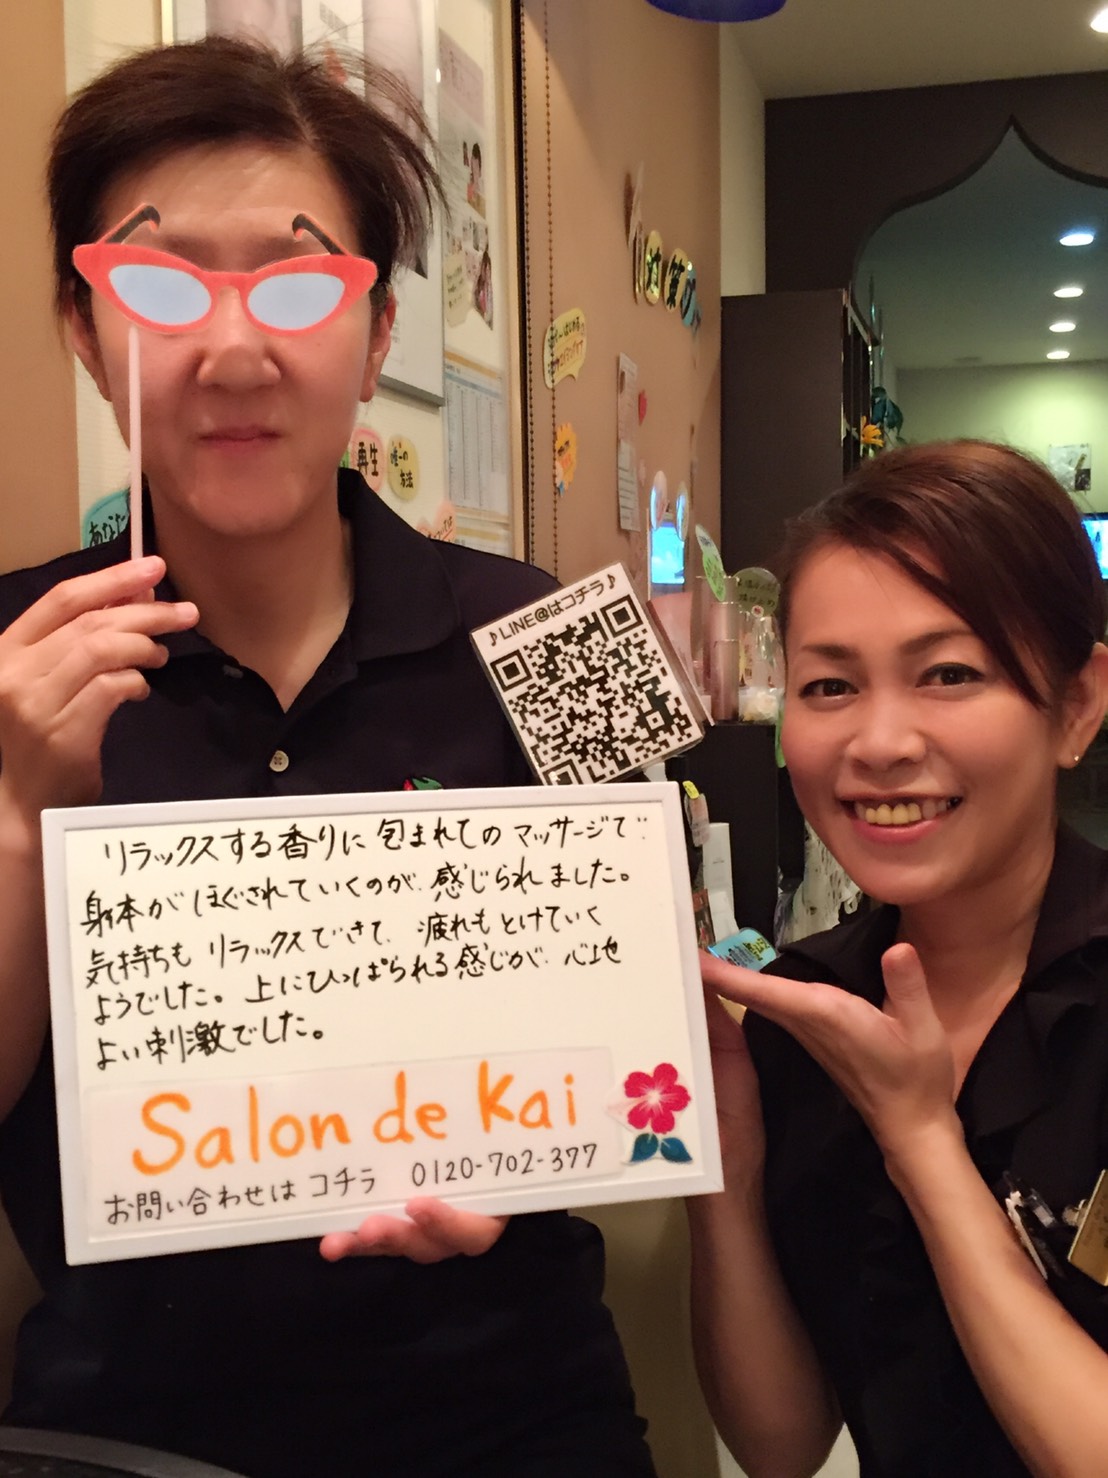 再生
唯一の
方法
あなた
♪LINE@はコチラ♪
リラックスする香りに包まれてのマッサージで
身体がほぐされていくのが、感じられました。
気持ちもリラックスできて、疲れもとけていく
ようでした。上にひっぱられる感じが、心地
よい刺激でした。
Salon de Kai
お問い合わせは コチラ 0120-702-377